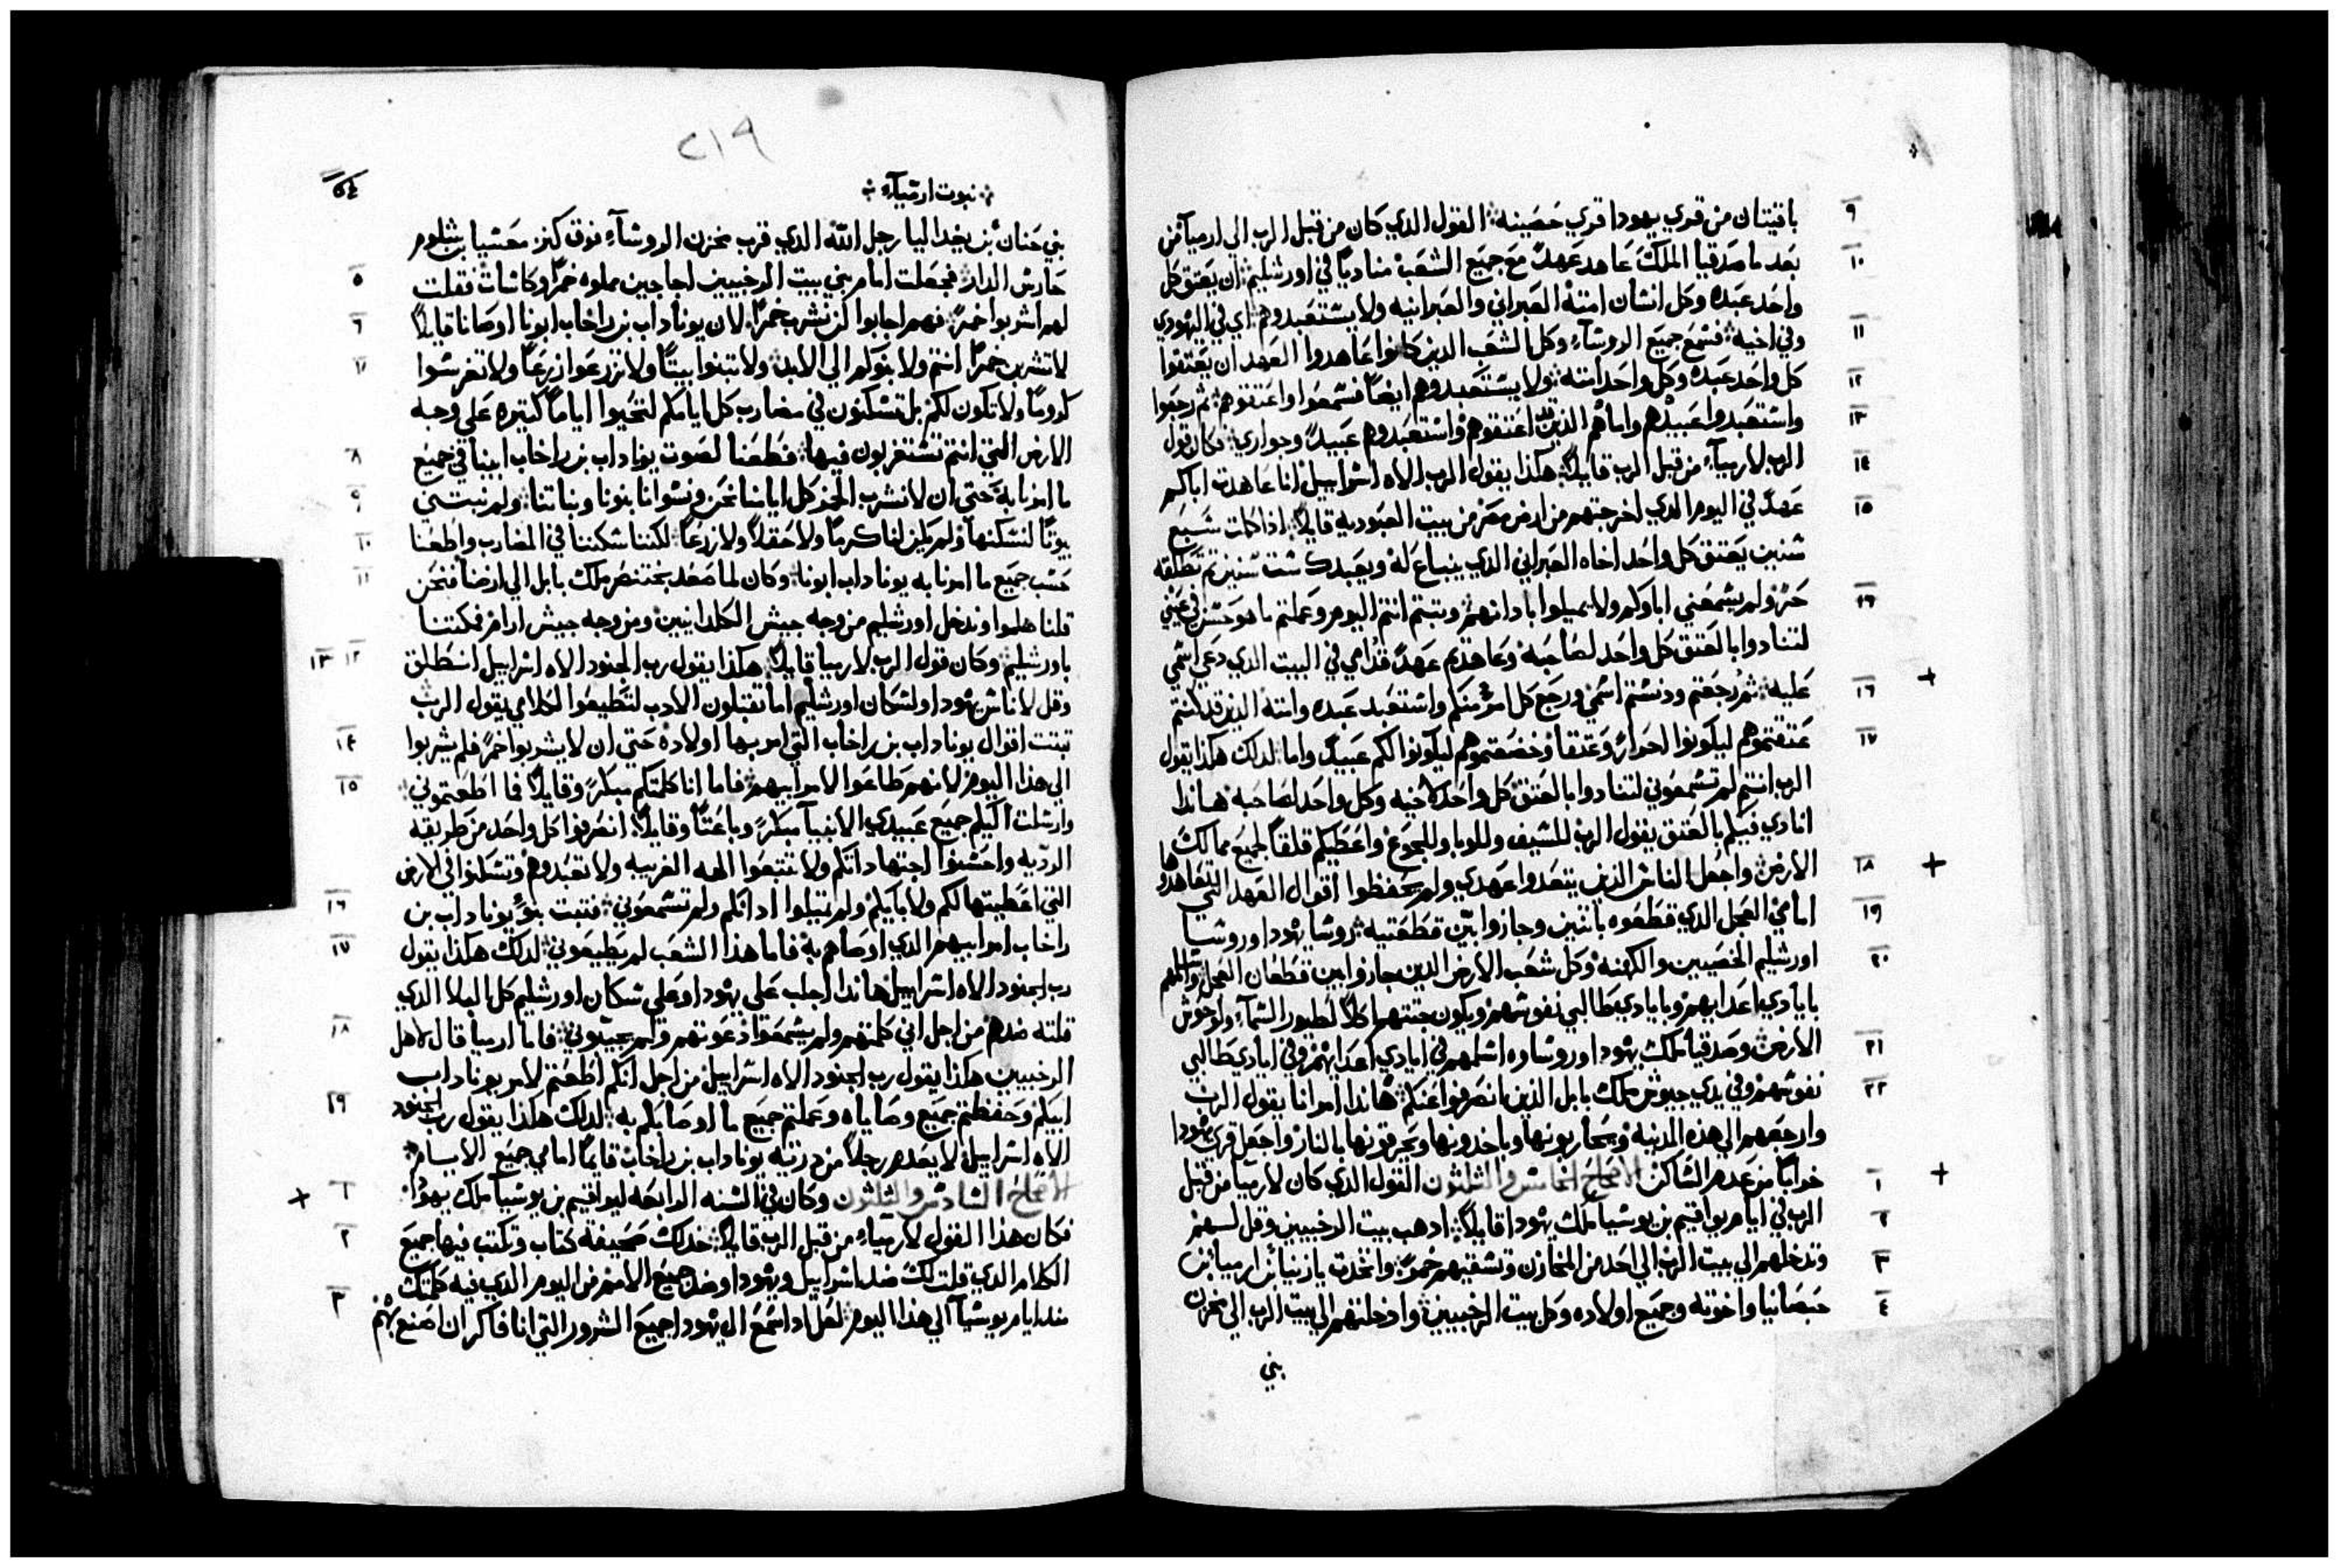 باقيتان من قري يهودا قري حصينه القول الذي كان من قبل الرب الي ارميا من
٩
بعد ما صدقيا الملك عاهد عهدًا مع جميع الشعب مناديًا في اورشليم ان يعتق كل
١٠
واحد عبده وكل انسان امته العبراني والعبرانيه ولا يستعبدوهم اي في اليهودي
وفي اخيه فسمع جميع الروسآء وكل الشعب الذين كانوا عاهدوا العهد ان يعتقوا
١١
كل واحد عبده وكل واحد امته ولا يستعبدوهم ايضًا فسمعوا واعتقوهم ثم رجعوا
١٢
واستعبدوا عبيدهم واماهم الذين اعتقوهم واستعبدوهم عبيدًا وجواري فكان قول
١٣
الرب لارميآء من قبل الرب قايلًا هكذا يقول الرب الاه اسراييل انا عاهدت اباكم
١٤
عهدًا في اليوم الذي اخرجتهم من ارض مصر من بيت العبوديه قايلًا اذا كملت سبع
١٥
سنين يعتق كل واحد اخاه العبراني الذي ينباع له ويعبدك ست سنين ثم تطلقه
حرًا ولم يسمعني اباوكم ولا يميلوا باداانهم وتبتم انتم اليوم وعملتم ما هو حسن في عيني
لتنادوا بالعتق كل واحد لصاحبه وعاهدتم عهدًا قدامي في البيت الذي دعي اسمي
عليه ثم رجعتم ودنستم اسمي ورجع كل امر منكم واستعبد عبده وامته الذين قد كنتم
١٦
عتقتموهم ليكونوا احرار وعتقا وخضعتموهم ليكونوا لكم عبيدًا واما لدلك هكذا يقول
١٧
الرب انتم لم تسمعوني لتنادوا بالعتق كل واحد لاخيه وكل واحد لصاحبه هاندا
انادي فيكم بالعتق يقول الرب للسيف وللوبا وللجوع واعطيكم قلقًا لجميع ممالك
الارض واجعل الناس الذين يتعدوا عهدي ولم يحفظوا اقوال العهد التي تعاهدوا
١٨
امامي العجل الذي قطعوه باتنين وجازوا بين قطعتيه روسا يهودا وروسا
١٩
اورشليم الخصيين والكهنه وكل شعب الارض الدين جازوا بين قطعان العجل واسلمهم
٢٠
بايادي اعدايهم وبايادي طالبي نفوسهم ويكون جتتهم اكلًا لطيور السمآء ولوحوش
الارض وصدقيا ملك يهودا وروساوه اسلمهم في ايادي اعدايهم وفي ايادي طالبي
٢١
نفوسهم وفي يدي جيوش ملك بابل الذين انصرفوا عنكم هاندا امر انا يقول الرب
٢٢
وارجعهم الي هذه المدينه ويحاربونها وياخدونها ويحرقونها بالنار واجعل قري يهودا
خرابًا من عدم الساكن الاصحاح الخامس والثلثون القول الذي كان لارميا من قبل
١
الرب في ايام يواقيم بن يوسيا ملك يهودا قايلًا ادهب بيت الرخبيين وقل لهم
٢
وتدخلهم الي بيت الرب الي احد من المخازن وتسقيهم خمرًا واتخدت يازنيا بن ارميا بن
٣
حبصانيا واخوته وجميع اولاده وكل بيت الرخبيين وادخلتهم الي بيت الرب الي مخزن
٤
بني
٢١٩
نبوت ارميآء
بني حنان بن يخداليا رجل الله الذي قرب مخزن الروسآء فوق كنز معشيا بن شلوم
حارس الدار فجعلت امام بني بيت الرخبيين اجاجين مملوه خمرًا وكاسات فقلت
٥
لهم اشربوا خمرًا فهم اجابوا لن نشرب خمرًا لان يوناداب بن راخاب ابونا اوصانا قايلًا
٦
لا تشربن خمرًا انتم ولا بنوكم الي الابد ولا تبنوا بيتًا ولا تزرعوا زرعًا ولا تغرسوا
٧
كرومًا ولا تكون لكم بل تسكنون في مضارب كل ايامكم لتحيوا ايامًا كتيره علي وجه
الارض التي انتم تستغربون فيها فطعنا لصوت يوناداب بن راخاب ابينا في جميع
٨
ما امرنا به حتي ان لا نشرب الخمر كل ايامنا نحن ونسوانا بنونا وبناتنا ولم نبتني
٩
بيوتًا لنسكنها ولم يكن لنا كرمًا ولا حقلًا ولا زرعًا لكننا سكننا في المضارب واطعنا
١٠
حسب جميع ما امرنا به يوناداب ابونا وكان لما صعد بختنصر ملك بابل الي ارضنا فنحن
١١
قلنا هلموا وندخل اورشليم من وجه جيش الكلدانيين ومن وجه جيش ارام فمكتنا
باورشليم وكان قول الرب لارميا قايلًا هكذا يقول رب الجنود الاه اسراييل انطلق
١٢ ١٣
وقل لاناس يهودا ولسكان اورشليم اما تقبلون الادب لتطيعوا لكلامي يقول الرب
تبتت اقوال يوناداب بن راخاب التي امر بها اولاده حتي ان لا يشربوا خمرًا فلم يشربوا
١٤
الي هذا اليوم لانهم طاعوا لامر ابيهم فاما انا كلمتكم مبكرًا وقايلًا فما اطعتموني
وارسلت اليكم جميع عبيدي الانبيآ مبكرًا وباعتًا وقايلًا انصرفوا كل واحد من طريقه
١٥
الرديه واحسنوا اجتهاداتكم ولا تتبعوا الهه الغريبه ولا تعبدوهم وتسكنوا في الارض
التي اعطيتها لكم ولابايكم ولم تميلوا ادانكم ولم تسمعوني فتبت بنو يوناداب بن
١٦
راخاب امر ابيهم الذي اوصاهم به فاما هذا الشعب لم يطيعوني لدلك هكذا يقول
١٧
رب الجنود الاه اسراييل هاندا اجلب علي يهودا وعلي سكان اورشليم كل البلايا الذي
قلته ضدهم من اجل اني كلمتهم ولم يسمعوا دعوتهم ولم يجيبوني فاما ارميا قال لاهل
١٨
الرخبيين هكذا يقول رب الجنود الاه اسراييل من اجل انكم اطعتم لامر يوناداب
ابيكم وحفظتم جميع وصاياه وعملتم جميع ما اوصاكم به لدلك هكذا يقول رب الجنود
١٩
الاه اسراييل لا يعدم رجلًا من درية يوناداب بن راخاب قايمًا امامي جميع الايام
الاصحاح السادس والثلثون وكان في السنه الرابعه ليواقيم بن يوسيا ملك يهودا
١
فكان هذا القول لارميآء من قبل الرب قايلًا خد لك صحيفة كتاب وتكتب فيها جميع
٢
الكلام الذي قلت لك ضد اسراييل ويهودا وضد جميع الامم من اليوم الدي فيه كلمتك
مند ايام يوسيا الي هذا اليوم لعل ادا سمع ال يهودا جميع الشرور التي انا فاكر ان اصنع بهم
٣